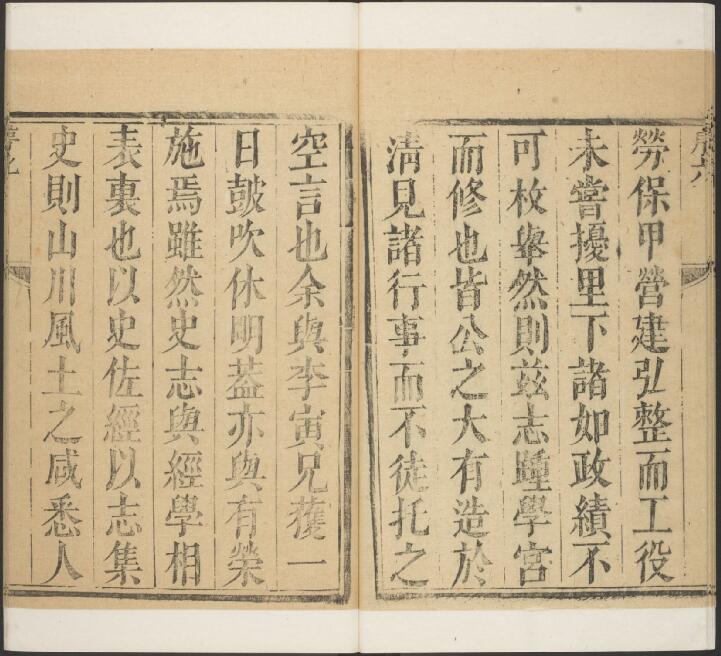 勞保甲營建弘整而工役
未嘗擾里下諸如政績不
可枚舉然則兹志踵學宮
而修也皆公之大有造於
清見諸行事而不徒托之
空言也余與李寅兄獲一
日鼓吹休明葢亦與有榮
施焉雖然史志與經學相
表裏也以史佐經以志集
史則山川風土之咸悉人